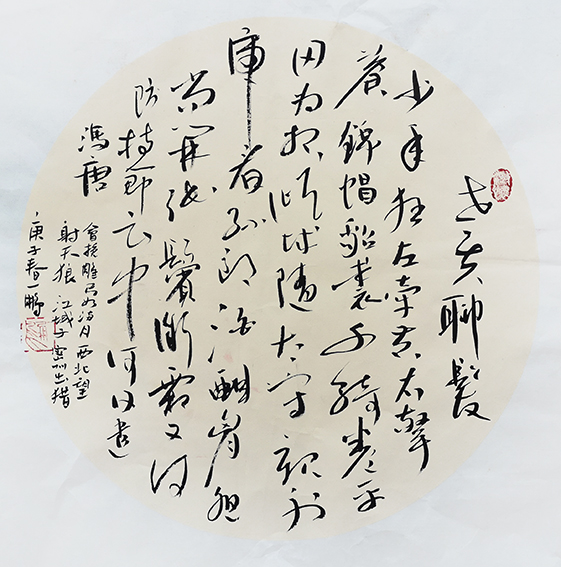 老夫聊髮
少年狂左牵黄右擎
蒼錦帽貂裘千騎卷平
冈为报倾城随太守親射
虎看孙郎酒酣胸胆
尚開张鬢微霜又何
妨持節云中何日遣
馮唐
會挽雕弓如满月西北望
射天狼 江城子密州出猎
庚子春一鹏